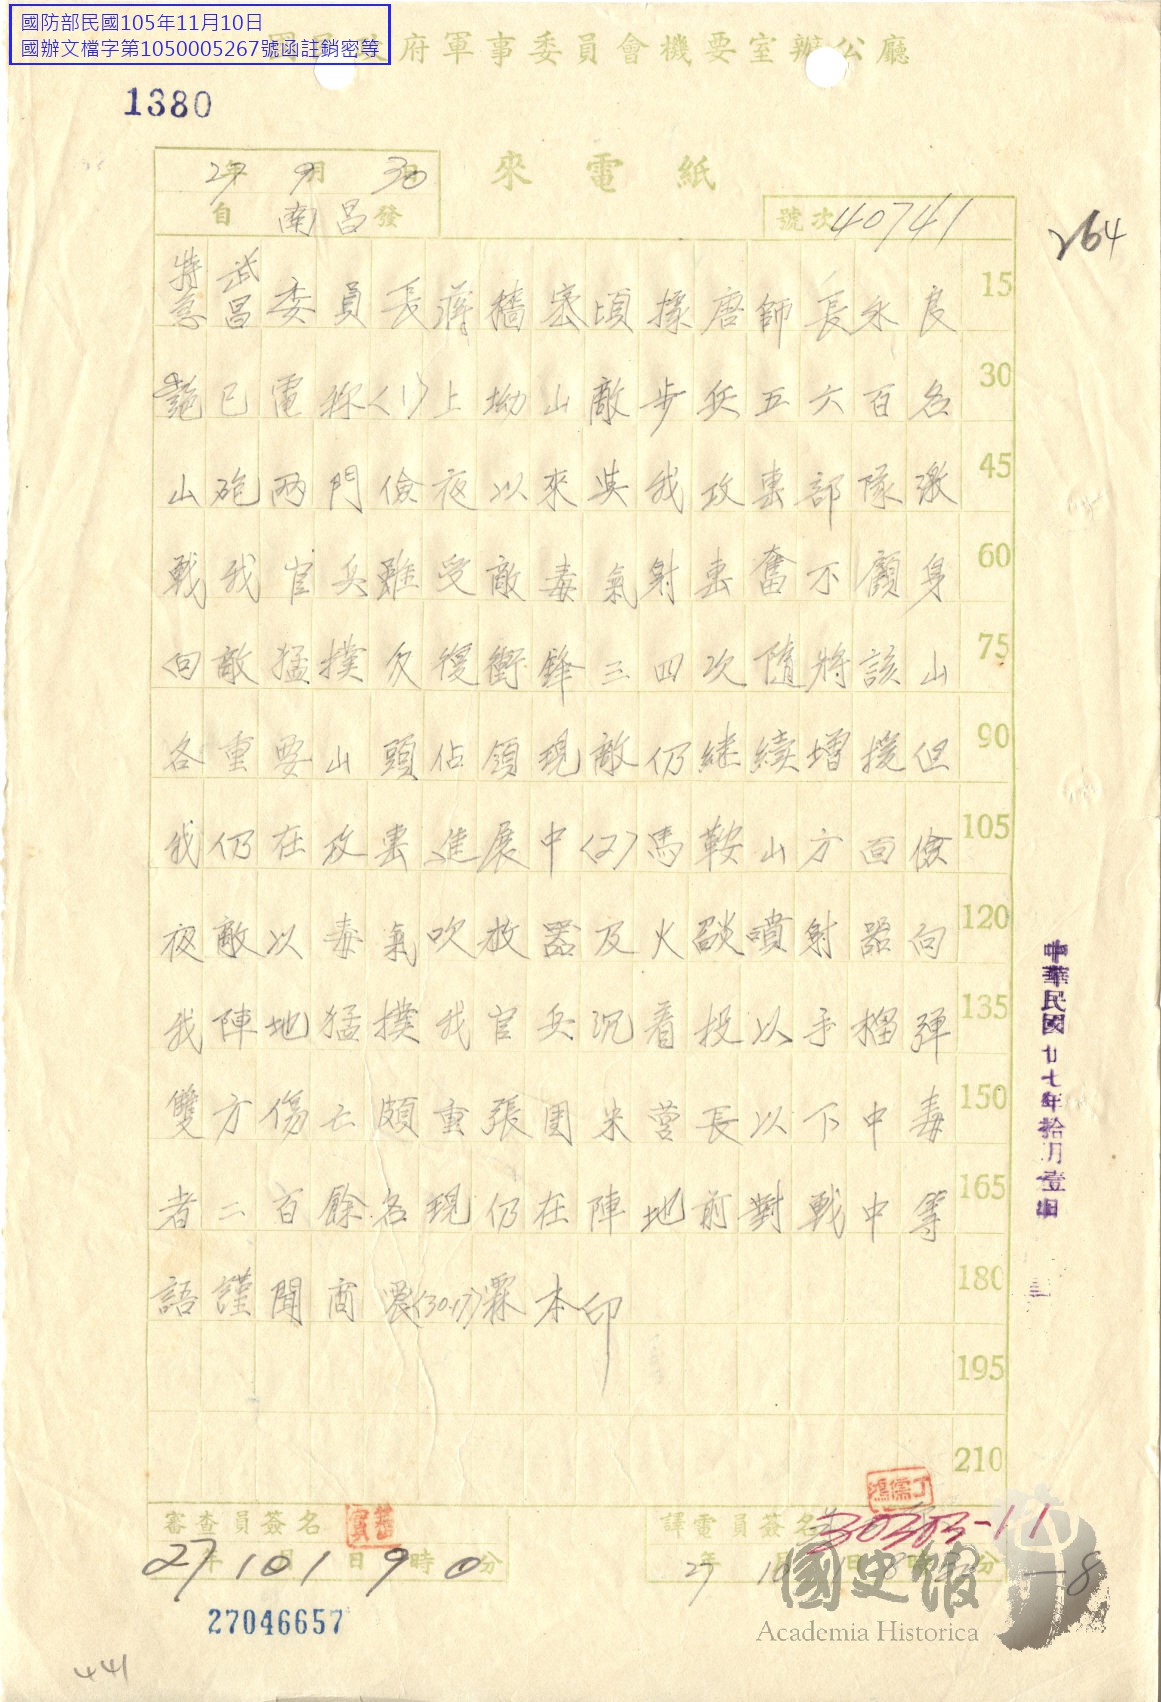 國防部民國105年11月10日
國辦文檔字第1050005267號函註銷密等
國民政府軍事委員會機要室辦公廳
1380
來電紙
27年9月30日
自南昌發
號次40741
264
特急武昌委員長蔣 密頃據唐師長永良 15
已電稱(1)上坳山敵步兵五六百名 30
山砲兩門儉夜以來與我攻擊部隊激 45
戰我官兵雖受敵毒氣射擊奮不顧身 60
向敵猛撲反復衝鋒三四次隨將該山 75
各重要山頭佔領現敵仍繼續增援但 90
我仍在攻擊進展中(2)馬鞍山方面儉 105
夜敵以毒氣吹放器及火燄噴射器向 120
我陣地猛撲我官兵沉着投以手榴彈 135
雙方傷亡頗重張團米營長以下中毒 150
者二百餘名現仍在陣地前對戰中等 165
語謹聞商震(30.17)霖本印 180
195
210
中華民國廿七年拾月壹日
審查員簽名
譯電員簽名
丁儒鴻
30303-11
27年10月1日9時0分
27年10月1日8時分
—8
27046657
441
國史館
Academia Historica